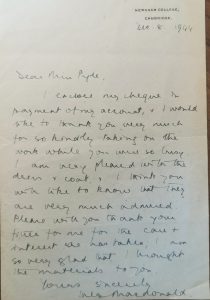 NEWNHAM COLLEGE,
CAMBRIDGE.
Dec. 8. 1944
Dear Miss Pyle,
I enclose my cheque in
payment of my account, & I would
like to thank you very much
for so kindly taking on the
work while you were so busy.
I am very pleased with the
dress & coat, & I think you
will like to know that they
are very much admired.
Please will you thank your
fitter for me for the care &
interest she has taken; I am
so very glad that I brought
the materials to you.
Yours sincerely
Macdonald